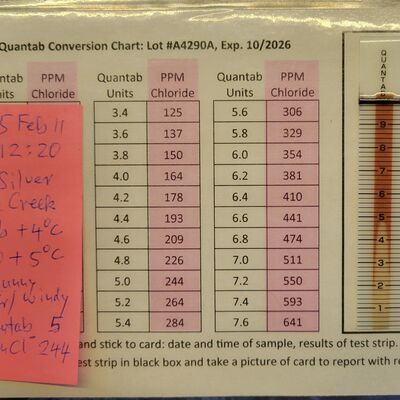 Quantab Conversion Chart: Lot #A4290A, Exp. 10/2026
ntab PPM Quantab PPM Quantab PPM
nits Chloride Units Chloride Units Chloride
3.4 125 5.6 306
3.6 137 5.8 329
3.8 150 6.0 354
4.0 164 6.2 381
4.2 178 6.4 410
4.4 193 6.6 441
4.6 209 6.8 474
4.8 226 7.0 511
5.0 244 7.2 550
5.2 264 7.4 593
5.4 284 7.6 641
5 Feb 11
12:20
Silver
Creek
+4°C
+5°C
unny
windy
tab 5
Cl⁻ 244
and stick to card: date and time of sample, results of test strip.
est strip in black box and take a picture of card to report with re
QUANTAB
9
8
7
6
5
4
3
2
1